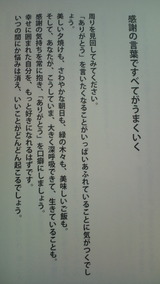 感謝の言葉ですべてがうまくいく
周りを見回してみてください。
「ありがとう」を言いたくなることがいっぱいあふれていることに気がつくでし
ょう。
美しい夕焼けも、さわやかな朝日も、緑の木々も、美味しいご飯も。
そして、あなたが、こうしていま、大きく深呼吸できて、生きていることも。
感謝の気持ちを常に抱き、「ありがとう」を口癖にしましょう。
幸せに囲まれた自分を、もっと好きになれるはずです。
いつの間にか悩みは消え、いいことがどんどん起こるでしょう。